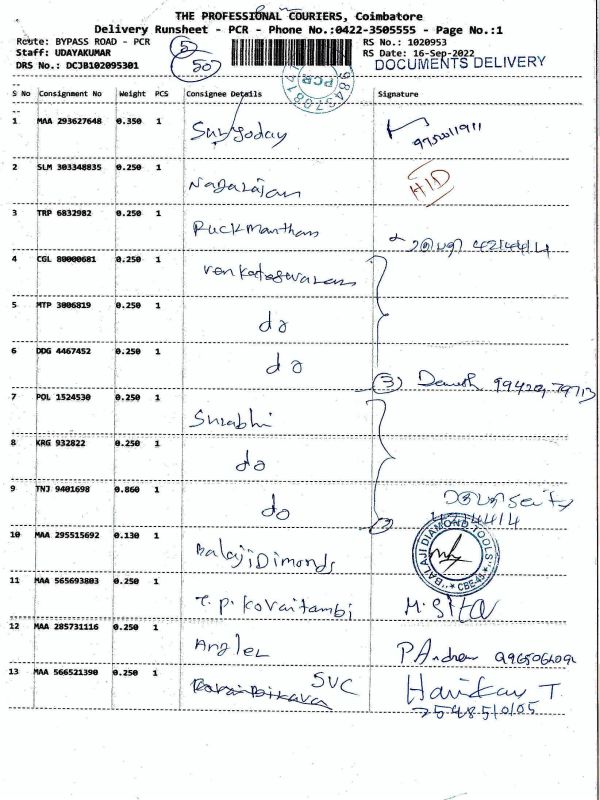 THE PROFESSIONAL COURIERS, Coimbatore
Delivery Runsheet - PCR - Phone No.:0422-3505555 - Page No.:1
Route: BYPASS ROAD - PCR
RS No.: 1020953
Staff: UDAYAKUMAR
RS Date: 16-Sep-2022
DRS No.: DCJB102095301
DOCUMENTS DELIVERY
5
507
PCR
S No Consignment No Weight PCS Consignee Details Signature
1 MAA 293627648 0.350 1 Suryoday 9750011911
2 SLM 303348835 0.250 1 Nagarajan HID
3 TRP 6832982 0.250 1 Ruckmantham 4214414
4 CGL 80000681 0.250 1 Venkateswaran
5 MTP 3006819 0.250 1 do
6 DDG 4467452 0.250 1 do
3 Danush
7 POL 1524530 0.250 1 Surabhi
8 KRG 932822 0.250 1 do
9 TNJ 9401698 0.860 1 do
4214414
10 MAA 295515692 0.130 1 Balaji Dimonds
BALAJI DIAMOND TOOLS CBE-45
11 MAA 565693803 0.250 1 T. P. Kovaitambi M. Sita
12 MAA 285731116 0.250 1 Angler P Andrew
13 MAA 566521390 0.250 1 SVC Harikar T.
7548510105